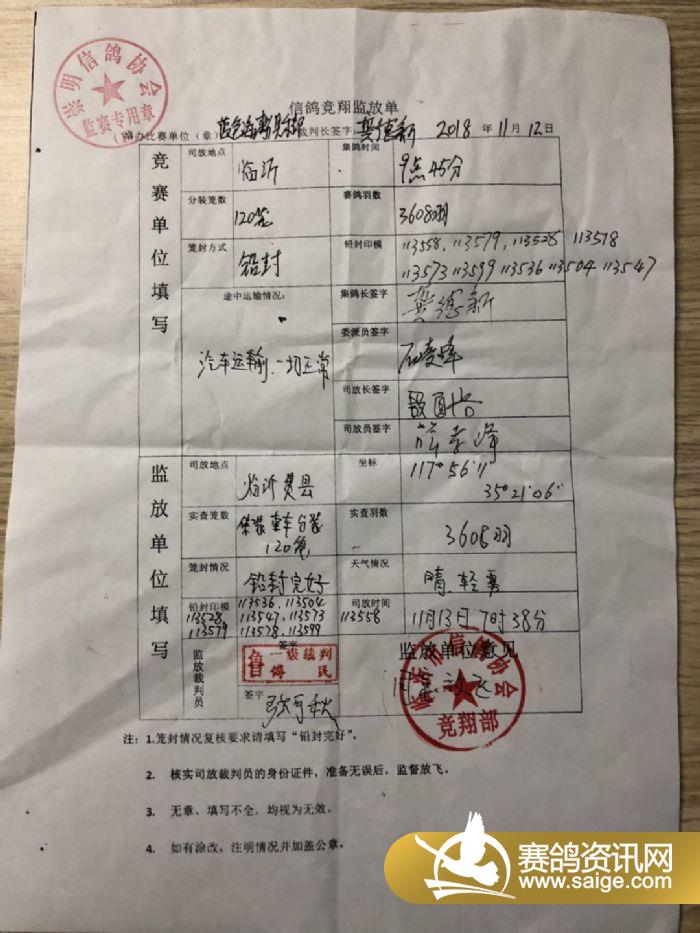 崇明信鸽协会
监赛专用章
信鸽竞翔监放单
裁判长签字: 龚德新 2018 年 11 月 12 日
竞赛单位填写
司放地点 临沂 集鸽时间 9点45分
分装笼数 120笼 赛鸽羽数 3608羽
笼封方式 铅封 铅封印模 113558、113579、113528 113578
113573 113599 113536 113504 113547
途中运输情况: 汽车运输、一切正常
集鸽长签字 龚德新
委派员签字
司放长签字
司放员签字
监放单位填写
司放地点 临沂费县 坐标 117°56′11″
35°21′06″
实查笼数 集装 车分装 120笼 实查羽数 3608羽
笼封情况 铅封完好 天气情况 晴、轻雾
铅封印模 113536、113504
113528、113547、113573 113558
113579 113578、113599
司放时间 11月13日 7时38分
监放裁判员
签字
一级裁判
签字
监放单位意见
同意放飞
临沂市信鸽协会
竞翔部
注: 1.笼封情况复核要求请填写“铅封完好”。
2. 核实司放裁判员的身份证件,准备无误后,监督放飞。
3. 无章、填写不全、均视为无效。
4. 如有涂改,注明情况并加盖公章。
赛鸽资讯网
www.saige.com